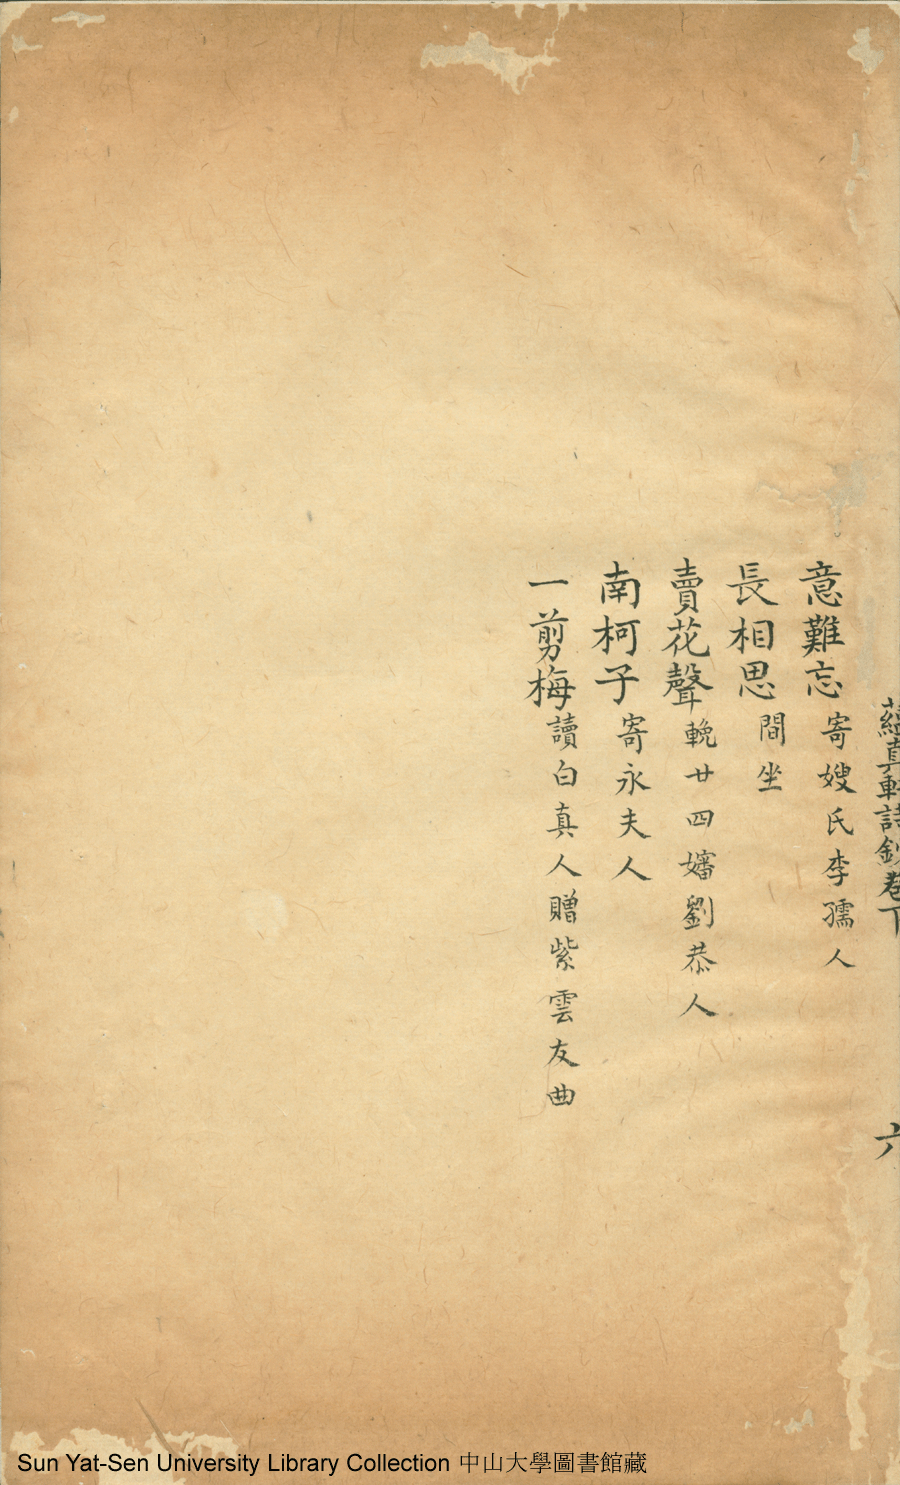 蘊真軒詩鈔卷下
六
意難忘寄嫂氏李孺人
長相思間坐
賣花聲輓廿四嬸劉恭人
南柯子寄永夫人
一剪梅讀白真人贈紫雲友曲
Sun Yat-Sen University Library Collection 中山大學圖書館藏